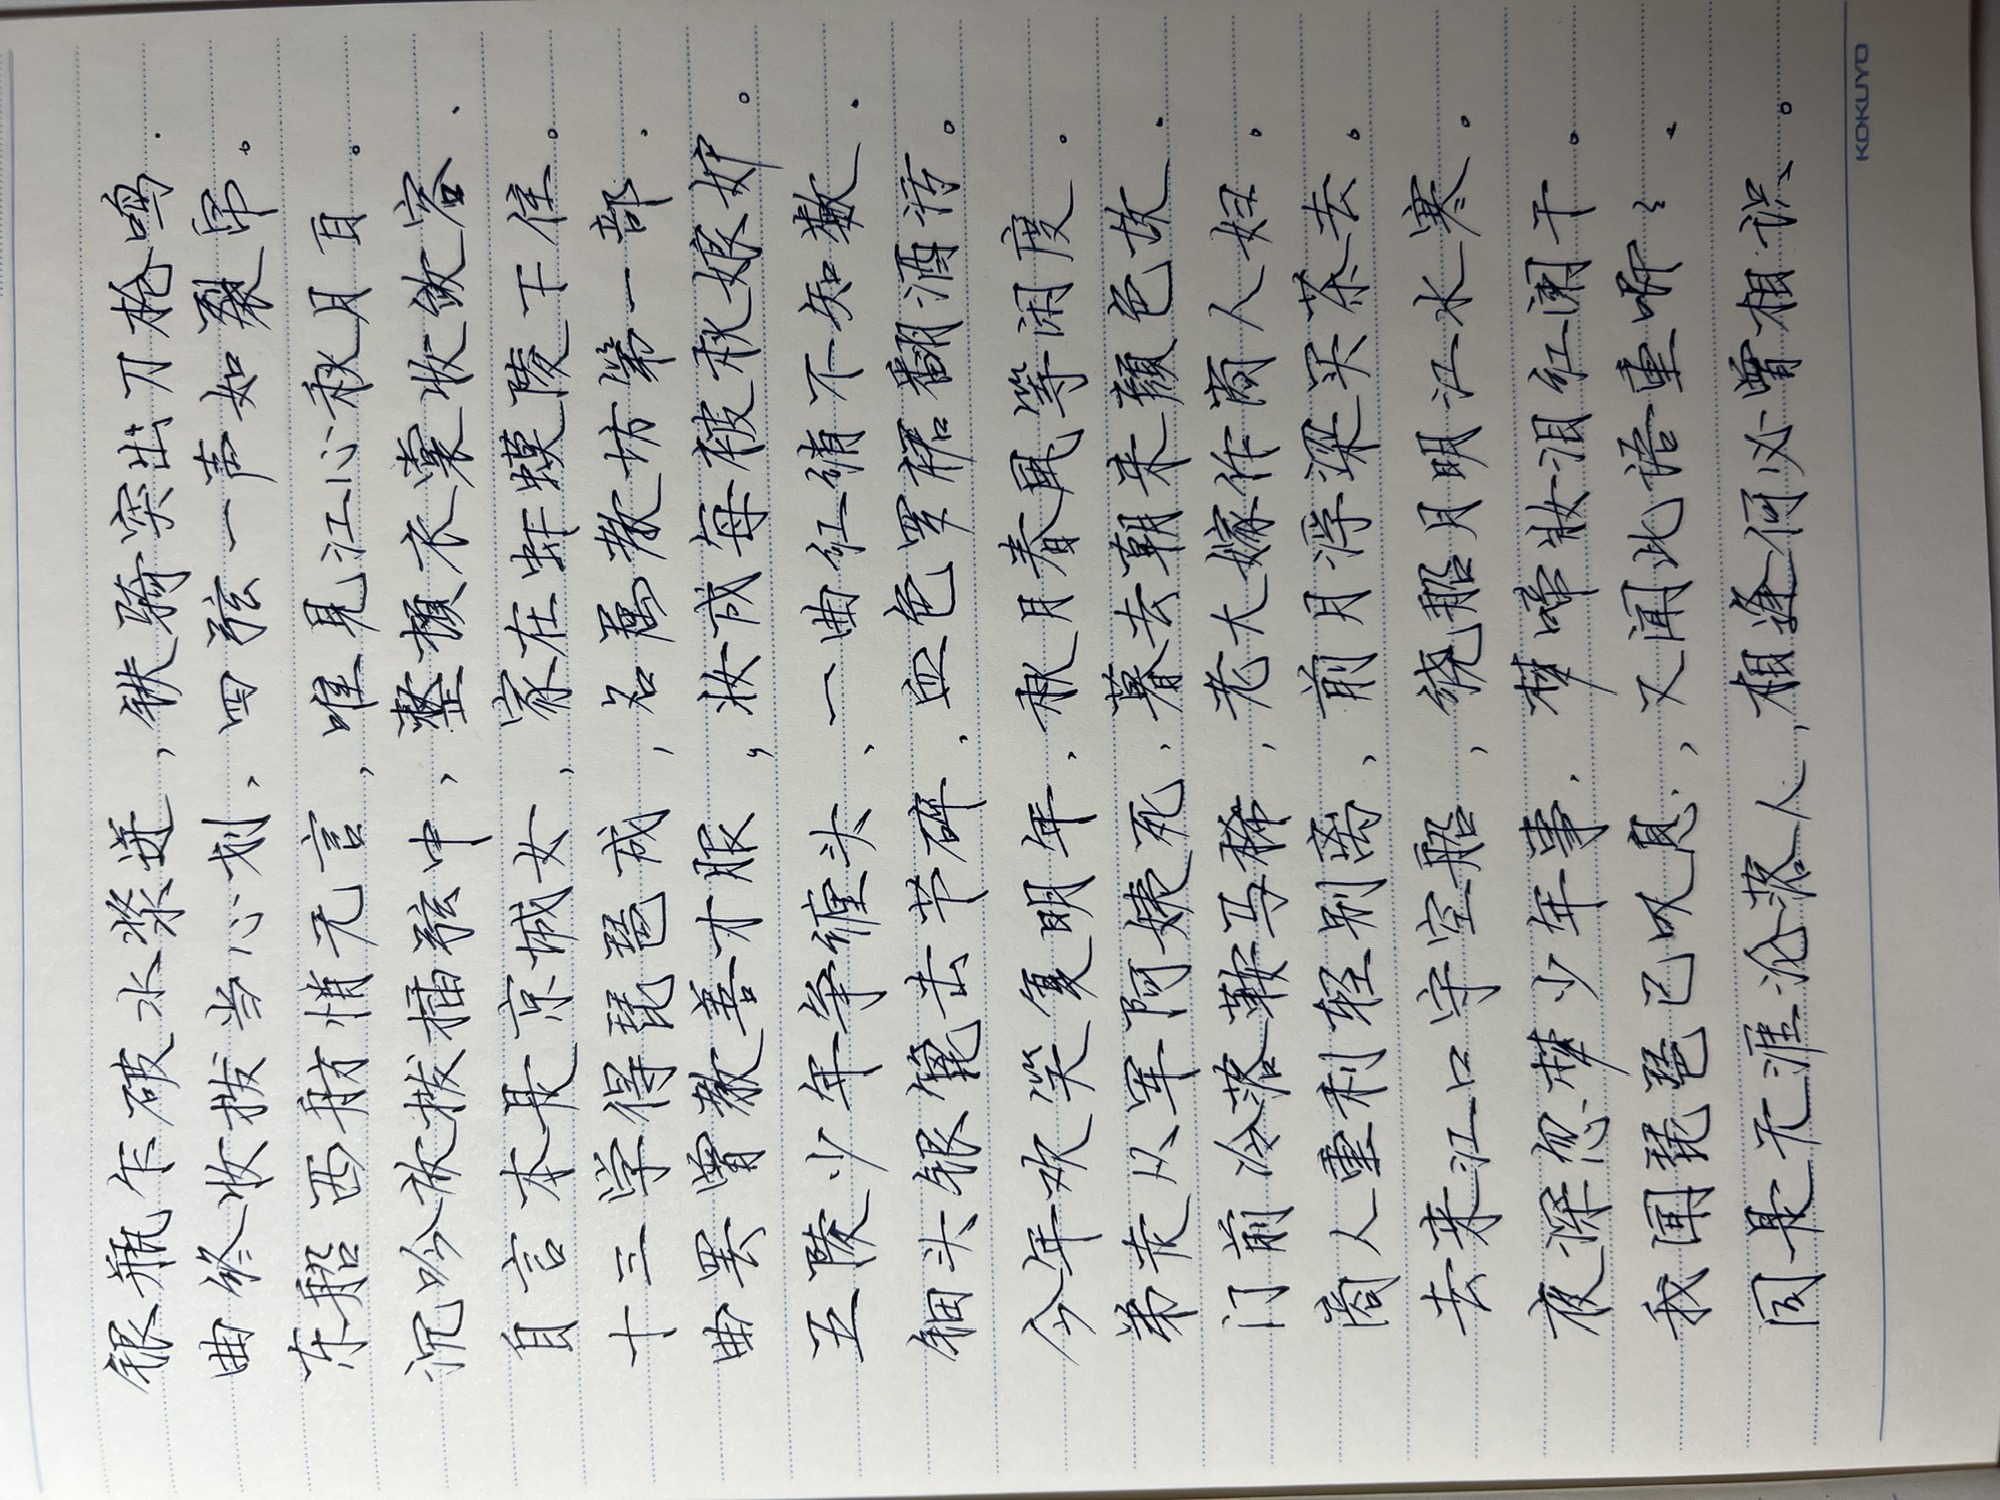 银瓶乍破水浆迸,铁骑突出刀枪鸣.
曲终收拔当心划,四弦一声如裂帛。
东船西舫悄无言,唯见江心秋月白。
沉吟放拔插弦中,整顿衣裳收敛容.
自言本是京城女,家在虾蟆陵下住。
十三学得琵琶成,名属教坊第一部.
曲罢曾教善才服,妆成每被秋娘妒。
五陵少年争缠头,一曲红绡不知数.
钿头银篦击节碎.血色罗裙翻酒污。
今年欢笑复明年.秋月春风等闲度。
弟走从军阿姨死,暮去朝来颜色故.
门前冷落鞍马稀,老大嫁作商人妇.
商人重利轻别离,前月浮梁买茶去。
去来江口守空船,绕船月明江水寒。
夜深忽梦少年事.梦啼妆泪红阑干。
我闻琵琶已叹息,又闻此语重唧々.
同是天涯沦落人,相逢何必曾相识。
KOKUYO